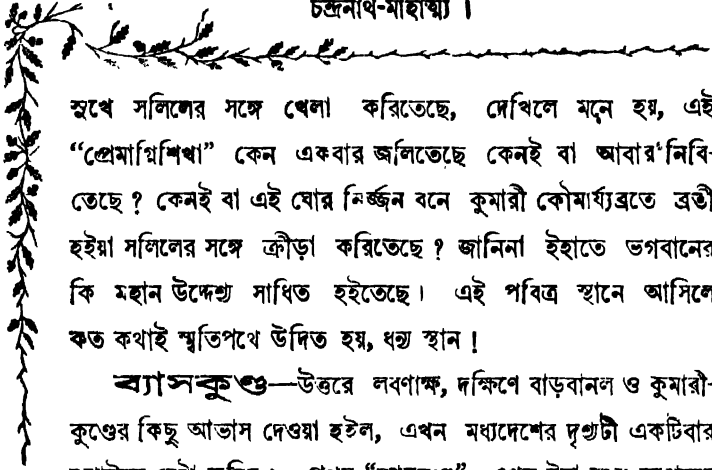 চন্দ্রনাথ-মাহাত্ম্য ।
সুখে সলিলের সঙ্গে খেলা করিতেছে, দেখিলে মনে হয়, এই
“প্রেমাগ্নিশিখা” কেন একবার জলিতেছে কেনই বা আবার নিবি-
তেছে ? কেনই বা এই ঘোর নির্জ্জন বনে কুমারী কৌমার্য্যব্রতে ব্রতী
হইয়া সলিলের সঙ্গে ক্রীড়া করিতেছে ? জানিনা ইহাতে ভগবানের
কি মহান উদ্দেশ্য সাধিত হইতেছে। এই পবিত্র স্থানে আসিলে
কত কথাই স্মৃতিপথে উদিত হয়, ধন্য স্থান !
ব্যাসকুণ্ড—উত্তরে লবণাক্ষ, দক্ষিণে বাড়বানল ও কুমারী-
কুণ্ডের কিছু আভাস দেওয়া হইল, এখন মধ্যদেশের দৃশ্যটী একটিবার